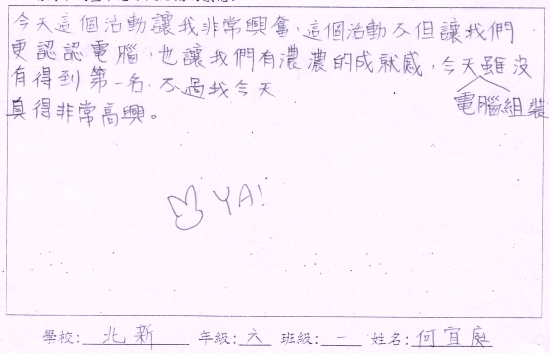 今天這個活動讓我非常興奮，這個活動不但讓我們
更認認電腦，也讓我們有濃濃的成就感，今天雖沒
電腦組裝
有得到第一名，不過我今天
真得非常高興。
YA!
學校：北新 年級：六 班級：一 姓名：何宜庭